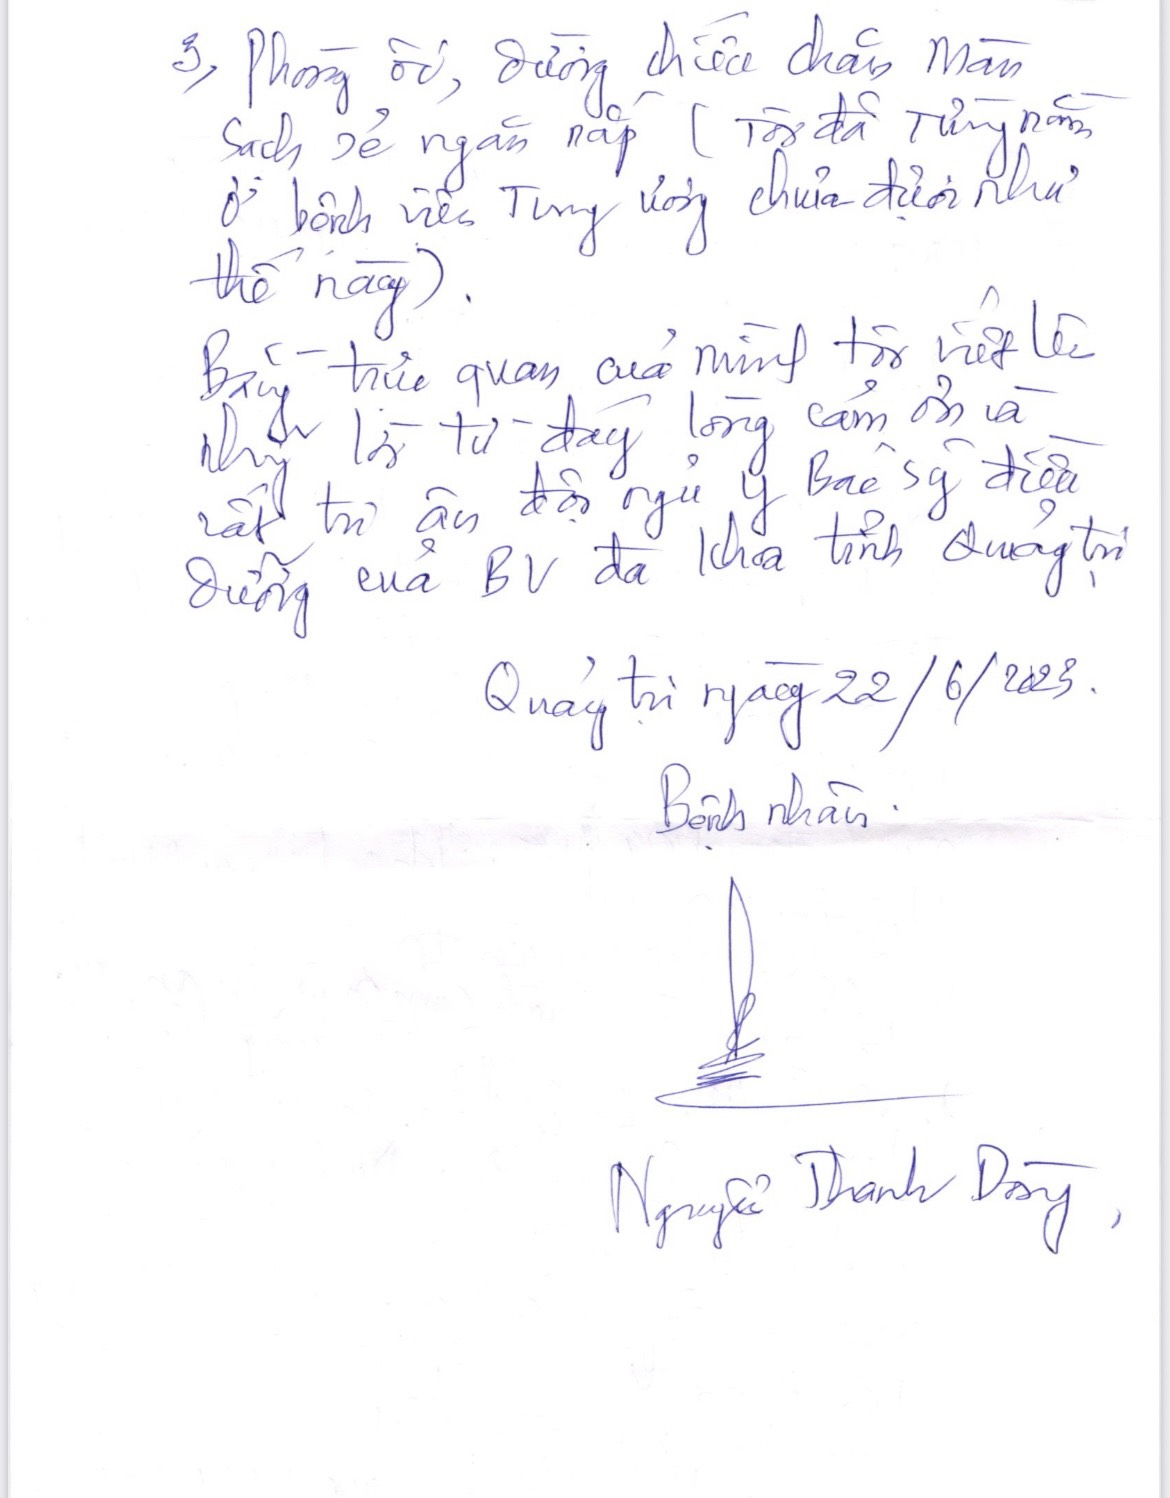 3, Phòng ốc, Giường chiếu chăn Màn
Sạch sẽ ngăn nắp ( Tôi đã Từng nằm
ở bệnh viện Trung ương chưa được như
thế này).
Bằng trực quan của mình tôi viết lên
những lời từ đáy lòng cảm ơn và
rất tri ân đội ngũ y Bác sỹ điều
dưỡng của BV đa khoa tỉnh Quảng trị
Quảng trị ngày 22/6/2023.
Bệnh nhân.
Nguyễn Thanh Dòng